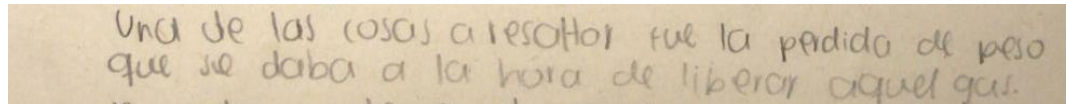 Una de las cosas a resaltar fue la perdida de peso
que se daba a la hora de liberar aquel gas.